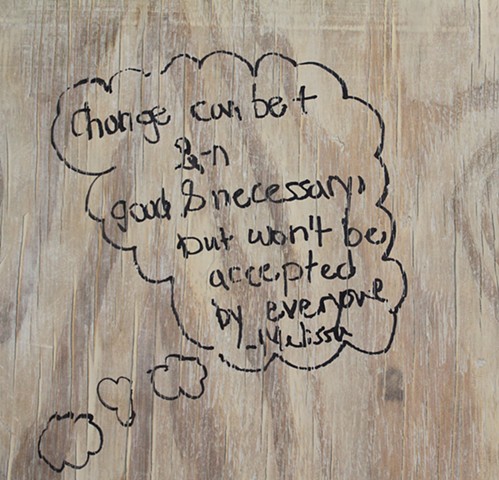 Change can be +
&-n
good & necessary,
but won't be
accepted
by everyone
-Melissa